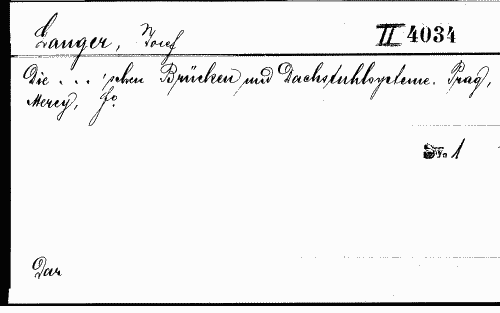 Langer, Josef
II 4034
Die . . . 'schen Brücken und Dachstuhlsysteme. Prag,
Mercy, Fo.
1
Dar